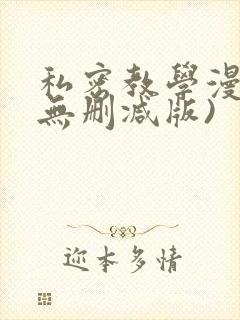 私密教學漫
無刪減版)
迩本多情